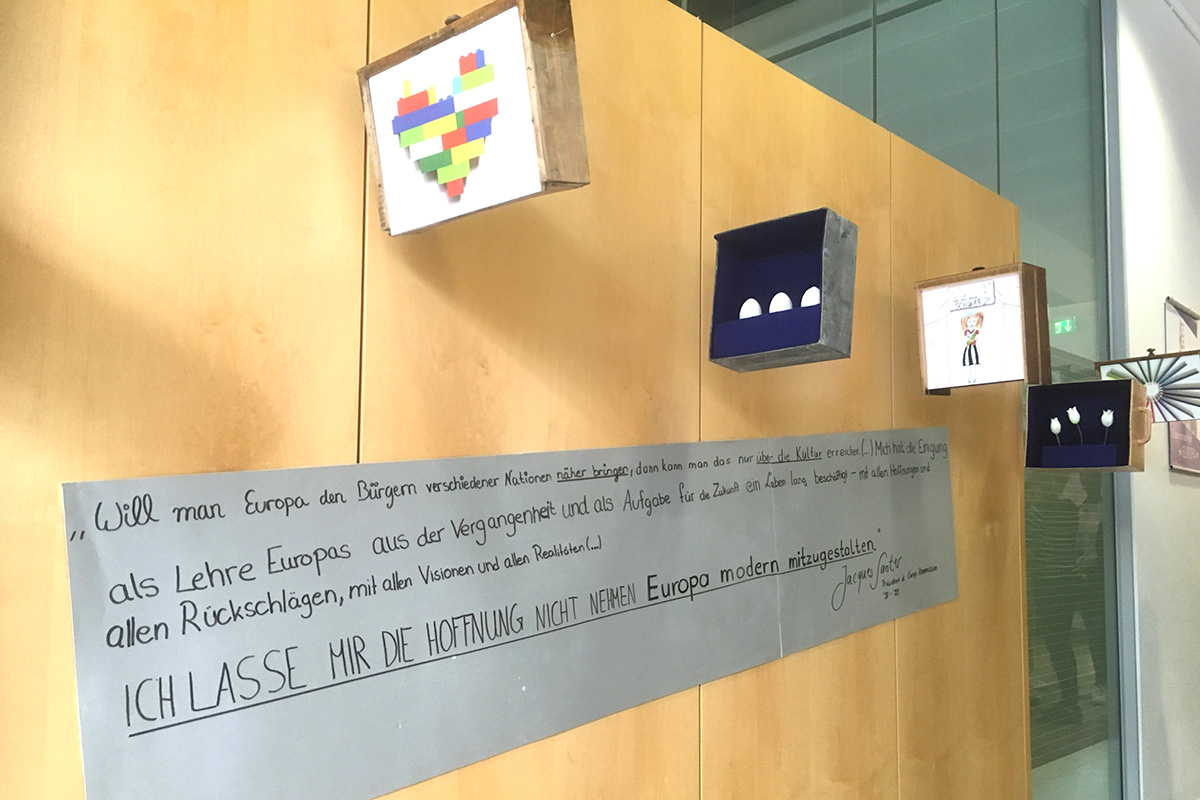 „Will man Europa den Bürgern verschiedener Nationen näher bringen, dann kann man das nur über die Kultur erreichen (...) Mich hat die Einigung
als Lehre Europas aus der Vergangenheit und als Aufgabe für die Zukunft ein Leben lang beschäftigt - mit allen Hoffnungen und
allen Rückschlägen, mit allen Visionen und allen Realitäten (...)
ICH LASSE MIR DIE HOFFNUNG NICHT NEHMEN Europa modern mitzugestalten."
Jacques Santer